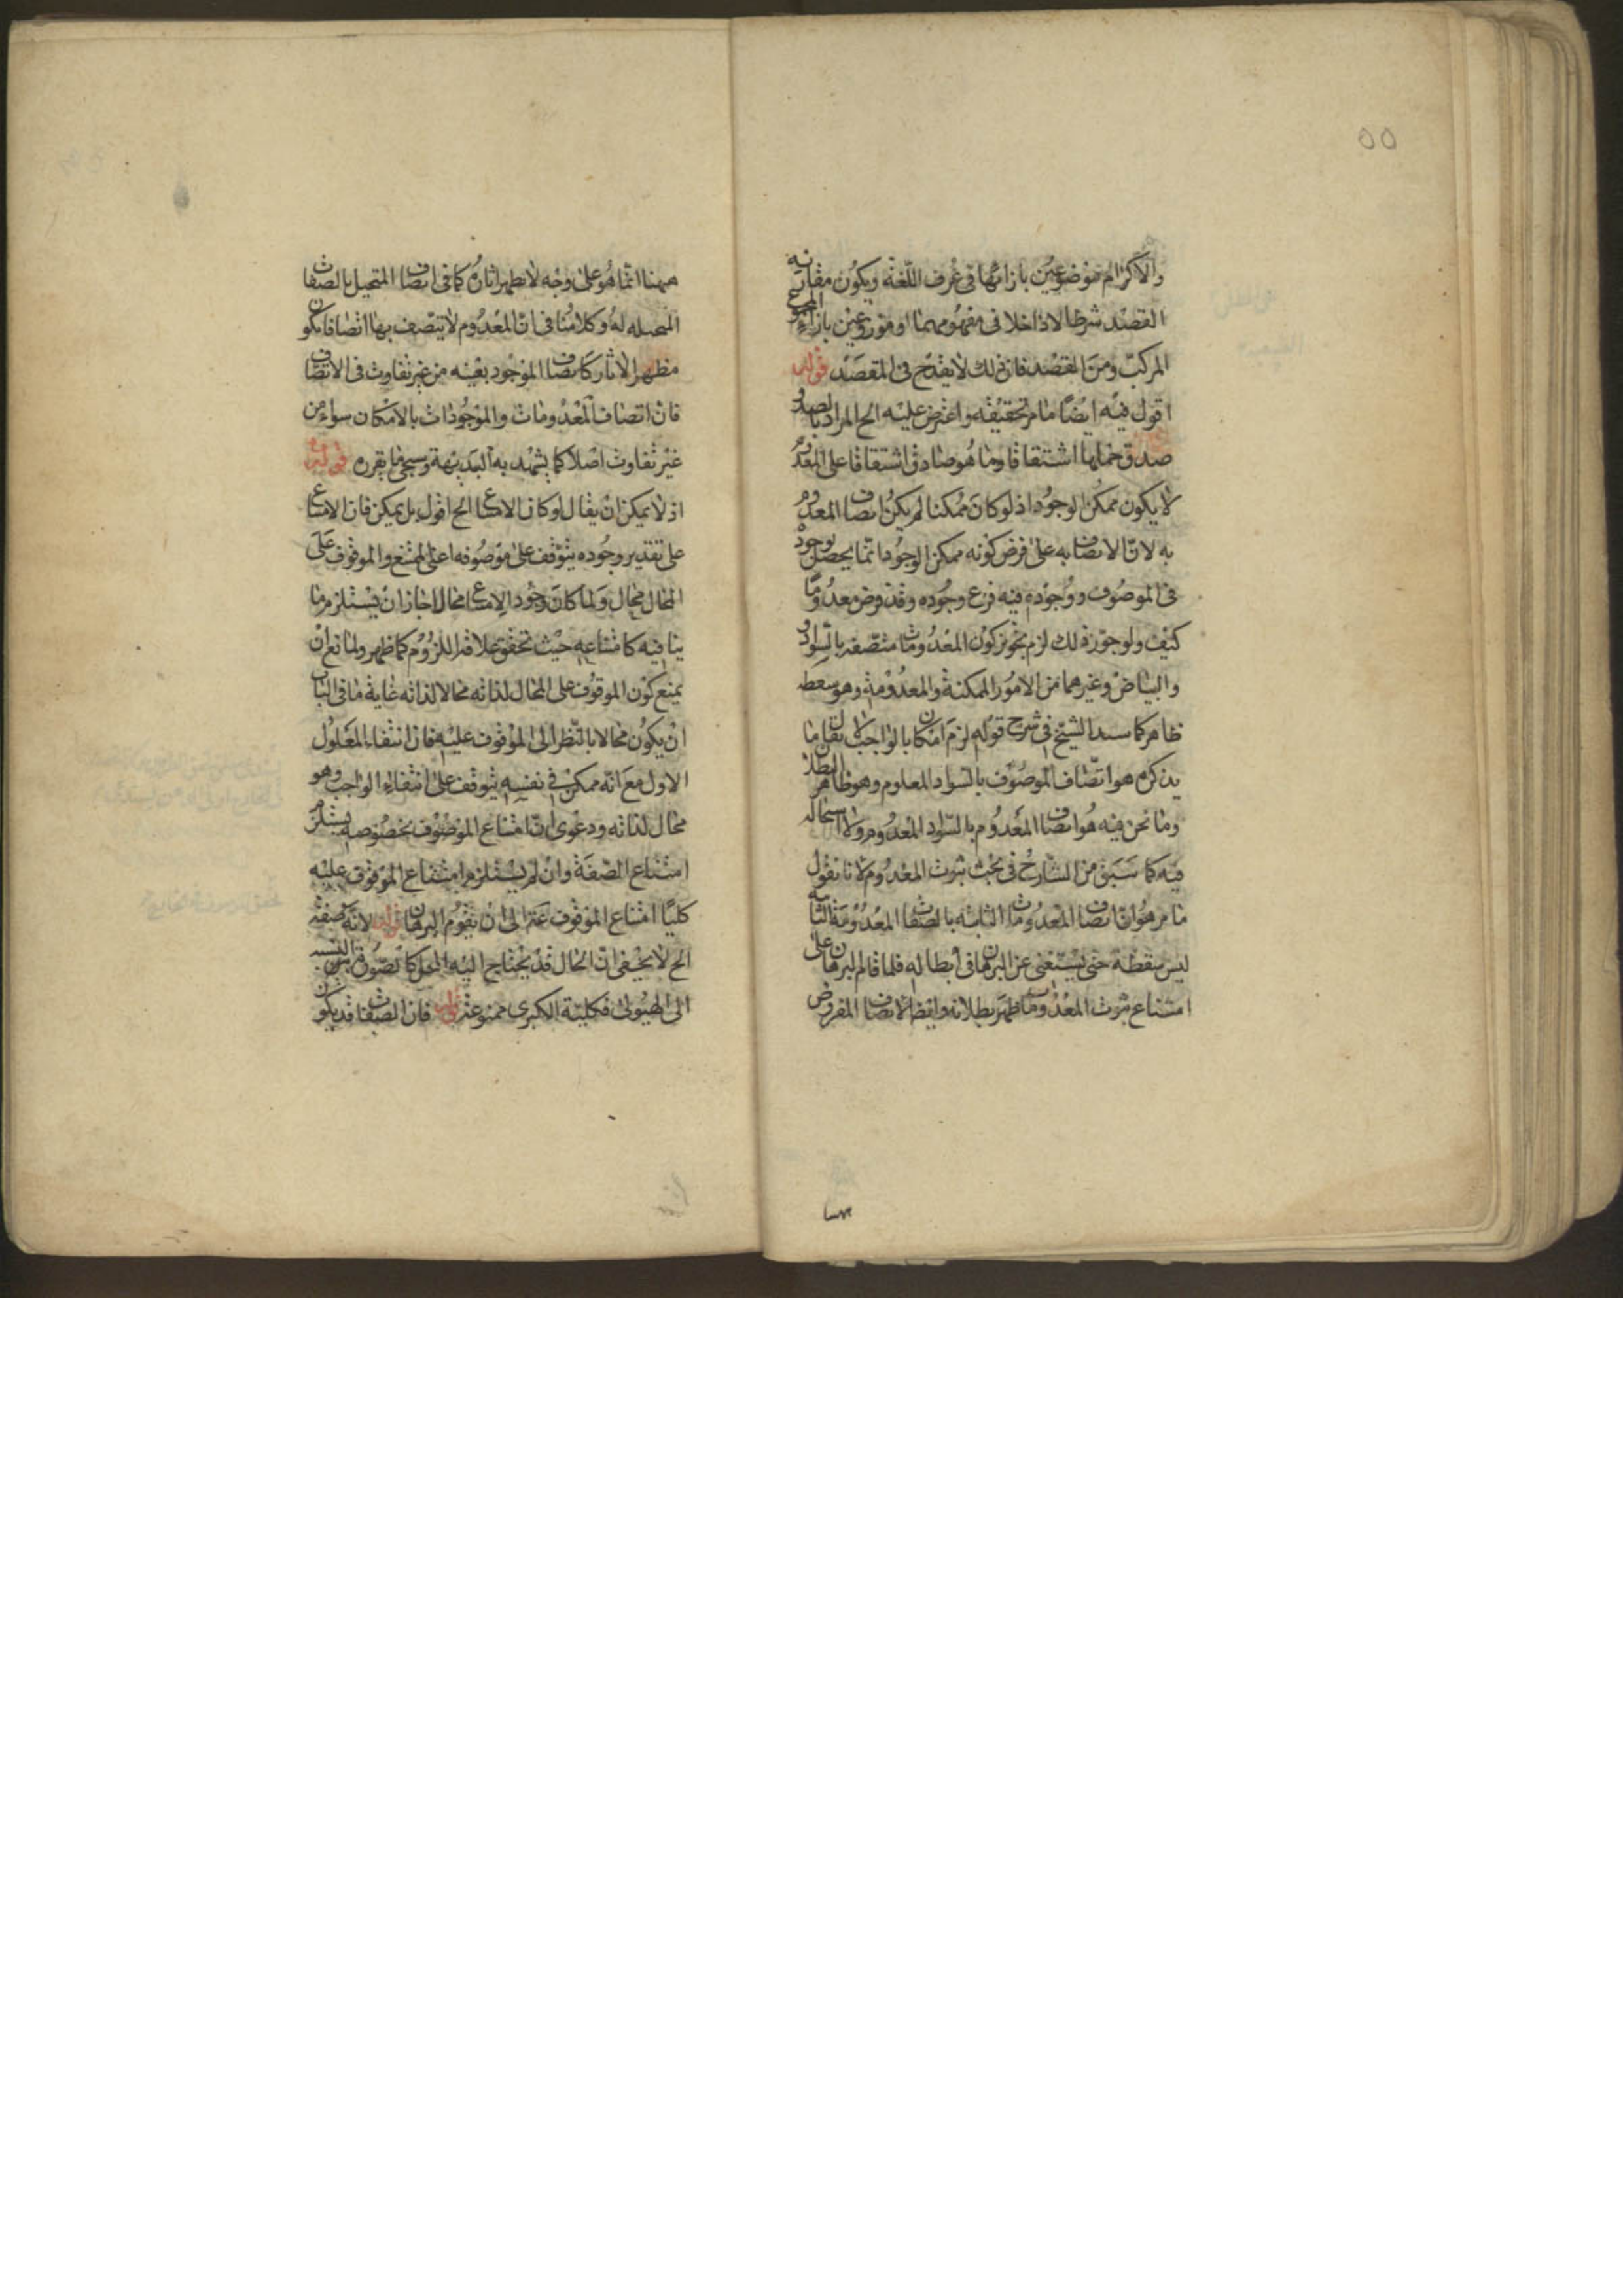 ٥٥
والاكرام موضوعين بازائها في عرف اللغة ويكون مقارنه
القصد شرطا لا داخلا في مفهومهما او موضوعين بازاء المجموع
المركب ومن القصد فان ذلك لا يقدح في المقصد قوله
اقول فيه ايضا ما مر تحقيقه واعترض عليه الخ المراد بالصدق
صدق حملها اشتقاقا وما هو صادق اشتقاقا على المعدوم
لا يكون ممكن الوجود اذ لو كان ممكنا لم يكن اتصاف المعدوم
به لان الاتصاف به على فرض كونه ممكن الوجود انما يحصل بوجوده
في الموصوف ووجوده فيه فرع وجوده وقد فرض معدوما
كيف ولو جوز ذلك لزم تجويز كون المعدومات متصفة بالسواد
والبياض وغيرهما من الامور الممكنة والمعدومة وهو سفسطه
ظاهر كما الشيخ في شرح قوله لزم امكان الواجب لا يقال ما
يذكره هو اتصاف الموصوف بالسواد المعلوم وهو ظاهر البطلان
وما نحن فيه هو اتصاف المعدوم بالسواد المعدوم ولا استحاله
فيه كما سبق من الشارح في بحث ثبوت المعدوم لانا نقول
ما مر هو ان اتصاف المعدومات الثابته بالصفات المعدومة الثابته
ليس سفسطة حتى يستغنى عن البرهان في ابطاله فلما قام البرهان على
امتناع ثبوت المعدومات ظهر بطلانه وايضا الاتصاف المفروض
ههنا
ههنا انما هو على وجه لا يظهر اثاره كما في اتصاف المتخيل بالصفات
المتخيله له وكلامنا في ان المعدوم لا يتصف بها اتصافا يكون
مظهر الاثار كاتصاف الموجود بعينه من غير تفاوت في الاتصاف
فان اتصاف المعدومات والموجودات بالامكان سواء من
غير تفاوت اصلا كما يشهد به البديهة وسيجئ ما يقرره قوله
اذ لا يمكن ان يقال لو كان الامتناع الخ اقول بل يمكن فان الامتناع
على تقدير وجوده يتوقف على موصوفه اعني الممتنع والموقوف على
المحال محال ولما كان وجود الامتناع محالا جاز ان يستلزم ما
ينافيه كامتناعه حيث تحقق علاقة اللزوم كما ظهر ولمانع ان
يمنع كون الموقوف على المحال لذاته محالا لذاته غاية ما في الباب
ان يكون محالا بالنظر الى الموقوف عليه فان انتفاء المعلول
الاول مع انه ممكن في نفسه يتوقف على انتفاء الواجب وهو
محال لذاته ودعوى ان امتناع الموصوف بخصوصه يستلزم
امتناع الصفة وان لم يستلزم امتناع الموقوف عليه
كليا امتناع الموقوف الى ان تقوم البرهان قوله لانه صفة
الخ لا يخفى ان الحال قد يحتاج اليه المحل كما تصور بالنسبه
الى الهيولى فكلية الكبرى ممنوعة قوله فان الصفات قد يكون